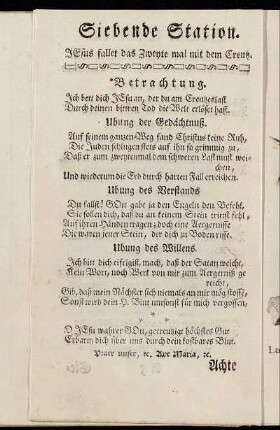 Siebende Station.
JEsus fallet das Zweyte mal mit dem Creutz.
Betrachtung.
Ich bett dich JEsu an, der du am Creutzeslast
Durch deinen bittren Tod die Welt erlöset hast.
Ubung der Gedächtnuß.
Auf seinem ganzen Weg fand Christus keine Ruh,
Die Juden schlugen stets auf ihn so grimmig zu,
Daß er zum zweytenmal dem schweren Last must wei-
chen,
Und wiederum die Erd durch harten Fall erreichen.
Ubung des Verstands
Du fallst! GOtt gabe ja den Engeln den Befehl,
Sie sollen dich, daß du an keinem Stein wirst fehl,
Auf ihren Händen tragen; doch eine Aergernisse
Die waren jener Stein, der dich zu Boden risse.
Ubung des Willens.
Ich bitt dich eifrigist, mach, daß der Satan weicht,
Kein Wort, noch Werk von mir zum Aergerniß ge
reicht,
Gib, daß mein Nächster sich niemals an mir mög stossen,
Sonst wird dein H. Blut umsonst für mich vergossen,
O JEsu wahrer GOtt, gecreutzigt höchstes Gut
Erbarm dich über uns durch dein kostbares Blut.
Vater unser, ꝛc. Ave Maria, ꝛc.
Achte